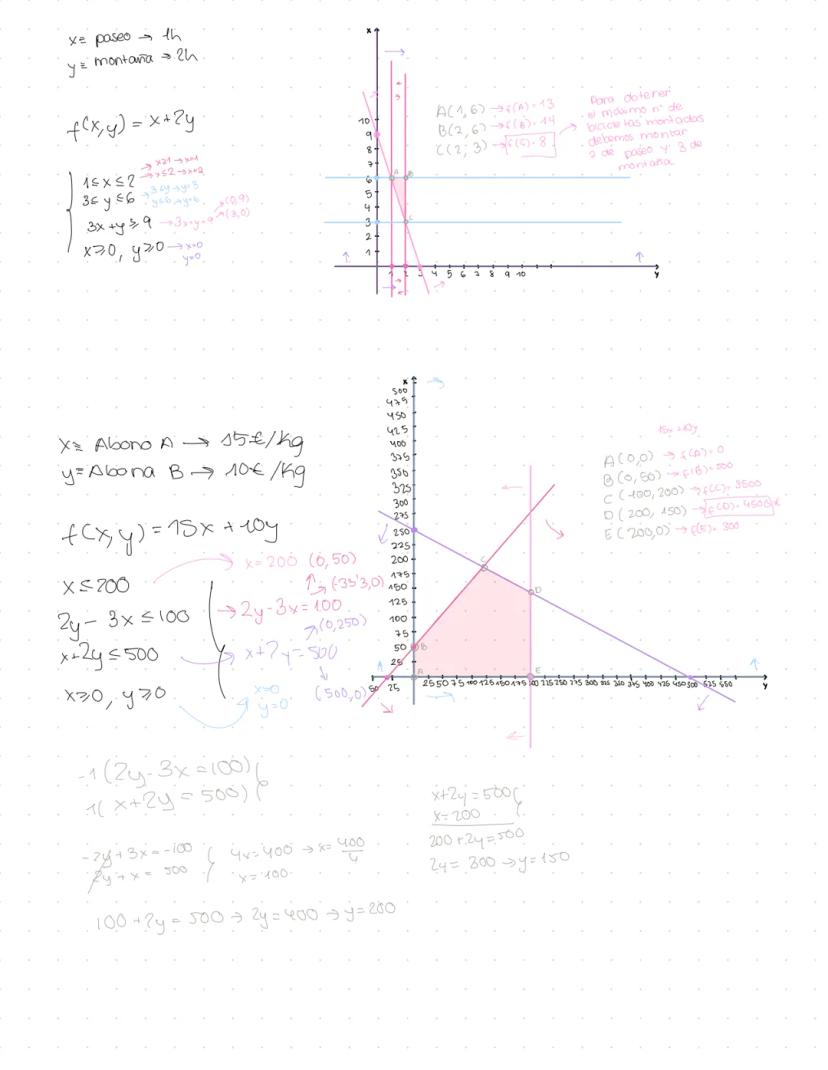 x≡ paseo → 1h
y≡ montaña → 2h
f(x,y) = x+2y
1≤x≤2
x≥1 → x=1
x≤2 → x=2
3≤y≤6
3≤y → y=3
y≤6 → y=6
3x+y≥9 → 3x+y=9
(0,9)
(3,0)
x≥0, y≥0 → x=0
y=0
x
10
9
8
7
6
5
4
3
2
1
1 2 3 4 5 6 7 8 9 10
y
A
B
C
A(1,6) → f(A)=13
B(2,6) → f(B)=14
C(2,3) → f(C)=8
Para obtener
el máximo nº de
bicicletas montadas
debemos montar
2 de paseo y 3 de
montaña
x≡ Abono A → 15€/kg
y=Abona B → 10€/kg
f(x,y) = 15x+10y
x≤200
x=200 (0,50)
(-33'3,0)
2y-3x≤100
→ 2y-3x=100
(0,250)
x+2y≤500
x+2y=500
(500,0)
x≥0, y≥0
x=0
y=0
x
500
475
450
425
400
375
350
325
300
275
250
225
200
175
150
125
100
75
50
25
50 25
25 50 75 100 125 150 175 200
y
A
B
C
D
E
15x+10y
A(0,0) → f(A)=0
B(0,50) → f(B)=500
C(100,200) → f(C)=3500
D(200,150) → f(D)=4500
E(200,0) → f(E)=300
-1(2y-3x=100)
1(x+2y=500)
-2y+3x=-100
2y+x=500
4x=400 → x=400/4
x=100
100+2y=500 → 2y=400 → y=200
x+2y=500
x=200
200+2y=500
2y=300 → y=150